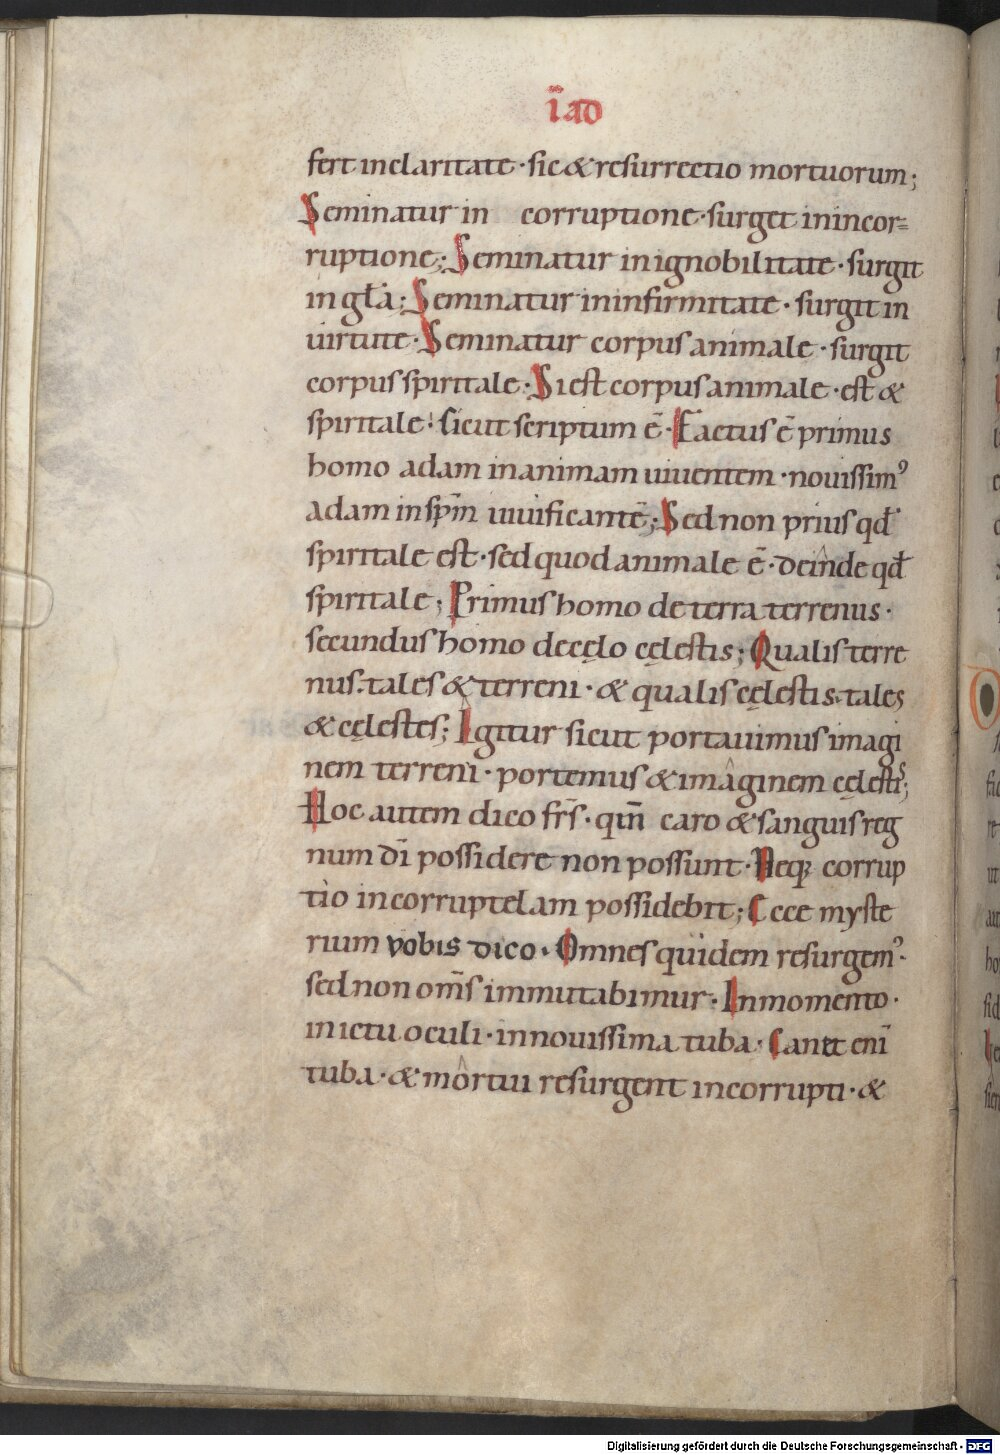 ī ad
fert in claritate · sic & resurrectio mortuorum;
Seminatur in corruptione · surget in incor=
ruptione; Seminatur in ignobilitate · surgit
in gl̄a; Seminatur in infirmitate · surgit in
uirtute · Seminatur corpus animale · surgit
corpus spiritale · Si est corpus animale · est &
spiritale · sicut scriptum ē · Factus ē primus
homo adam in animam uiuentem · nouissim᾿
adam in sp̄m uiuificantē; Sed non prius qđ
spiritale est · sed quod animale ē · deinde qđ
spiritale; Primus homo de terra terrenus ·
secundus homo de cęlo cęlestis; Qualis terre
nus · tales & terreni · & qualis cęlestis · tales
& cęlestes; Igitur sicut portauimus imagi
nem terreni · portemus & imaginem cęlestis;
Hoc autem dico fr̄s · qm̄ caro & sanguis reg
num dī possidere non possunt · Neq; corrup
tio incorruptelam possidebit; Ecce myste
rium vobis dico · Omnes quidem resurgem᾿ ·
sed non om̄s immutabimur · In momento ·
in ictu oculi · in nouissima tuba · Canet enī
tuba · & mortui resurgent incorrupti · &
Digitalisierung gefördert durch die Deutsche Forschungsgemeinschaft - DFG